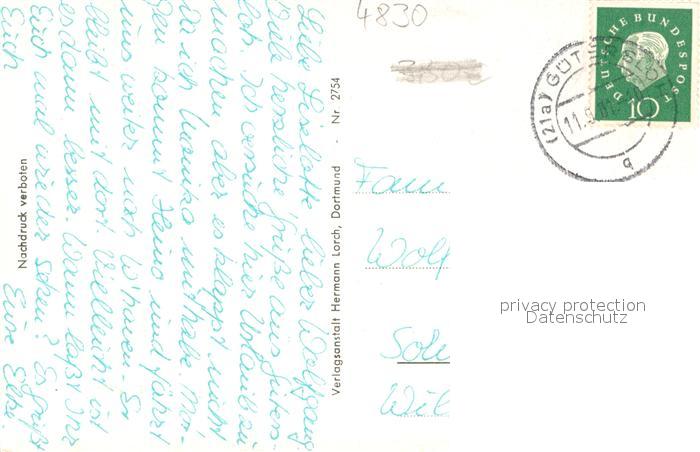 4830
DEUTSCHE BUNDESPOST
10
(21a) GÜTERSLOH
11.9.
q
Liebe Liselotte, lieber Wolfgang
Liebe herzliche Grüße aus Güters-
loh. Ich versuche hier Urlaub zu
machen aber es klappt nicht
da ich Monika mithabe. Mor-
gen kommt Heino und fährt
uns weiter nach W'haven. Er
bleibt mit dort. Vielleicht ist
es dann besser. Wann laßt Ihr
Euch mal wieder sehen? Es grüßt
Euch Eure Elke.
Nachdruck verboten
Verlagsanstalt Hermann Lorch, Dortmund · Nr 2754
Fam
Wolf
Sol
Wil
privacy protection
Datenschutz